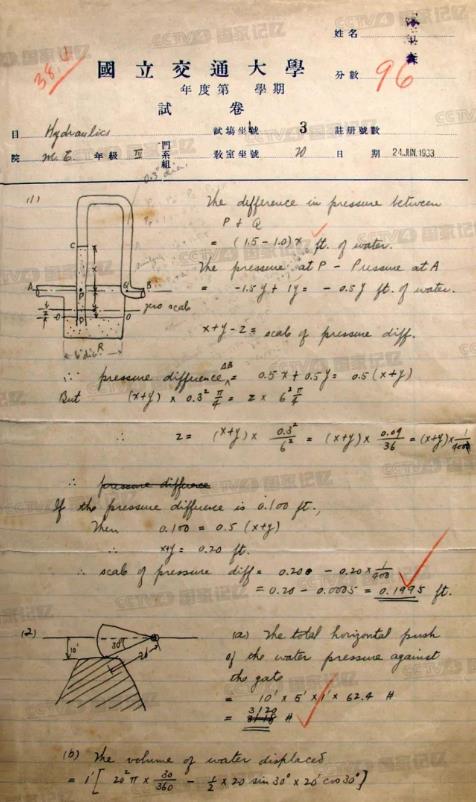 姓名
38.
國立交通大學
分數 96
年度第 學期
試卷
目 Hydraulics 試場坐號 3 註册號數
院 M.E. 年級 III 門系組 教室坐號 20 日期 24.JUN.1933
(1)
The difference in pressure between
P & Q
= (1.5 - 1.0) x ft. of water.
The pressure at P - Pressure at A
= -1.5y + 1y = -0.5y ft. of water.
x+y-z = scale of pressure diff.
C
A
B
P
Q
zero scale
O
O
6" dia
R
∴ pressure difference AB = 0.5x + 0.5y = 0.5(x+y)
But (x+y) x 0.3² π/4 = z x 6² π/4
∴ z = (x+y) x 0.3²/6² = (x+y) x 0.09/36 = (x+y) x 1/400
∴ pressure diffrence
If the pressure difference is 0.100 ft.,
Then 0.100 = 0.5 (x+y)
∴ x+y = 0.20 ft.
∴ scale of pressure diff = 0.200 - 0.20 x 1/400
= 0.20 - 0.0005 = 0.1995 ft.
(2)
10'
30°
20'
(a) The total horizontal push
of the water pressure against
the gate
= 10' x 5' x 1' x 62.4 #
= 3120 #
(b) The volume of water displaced
= 1' [ 20² π x 30/360 - 1/2 x 20 sin 30° x 20' cos 30° ]